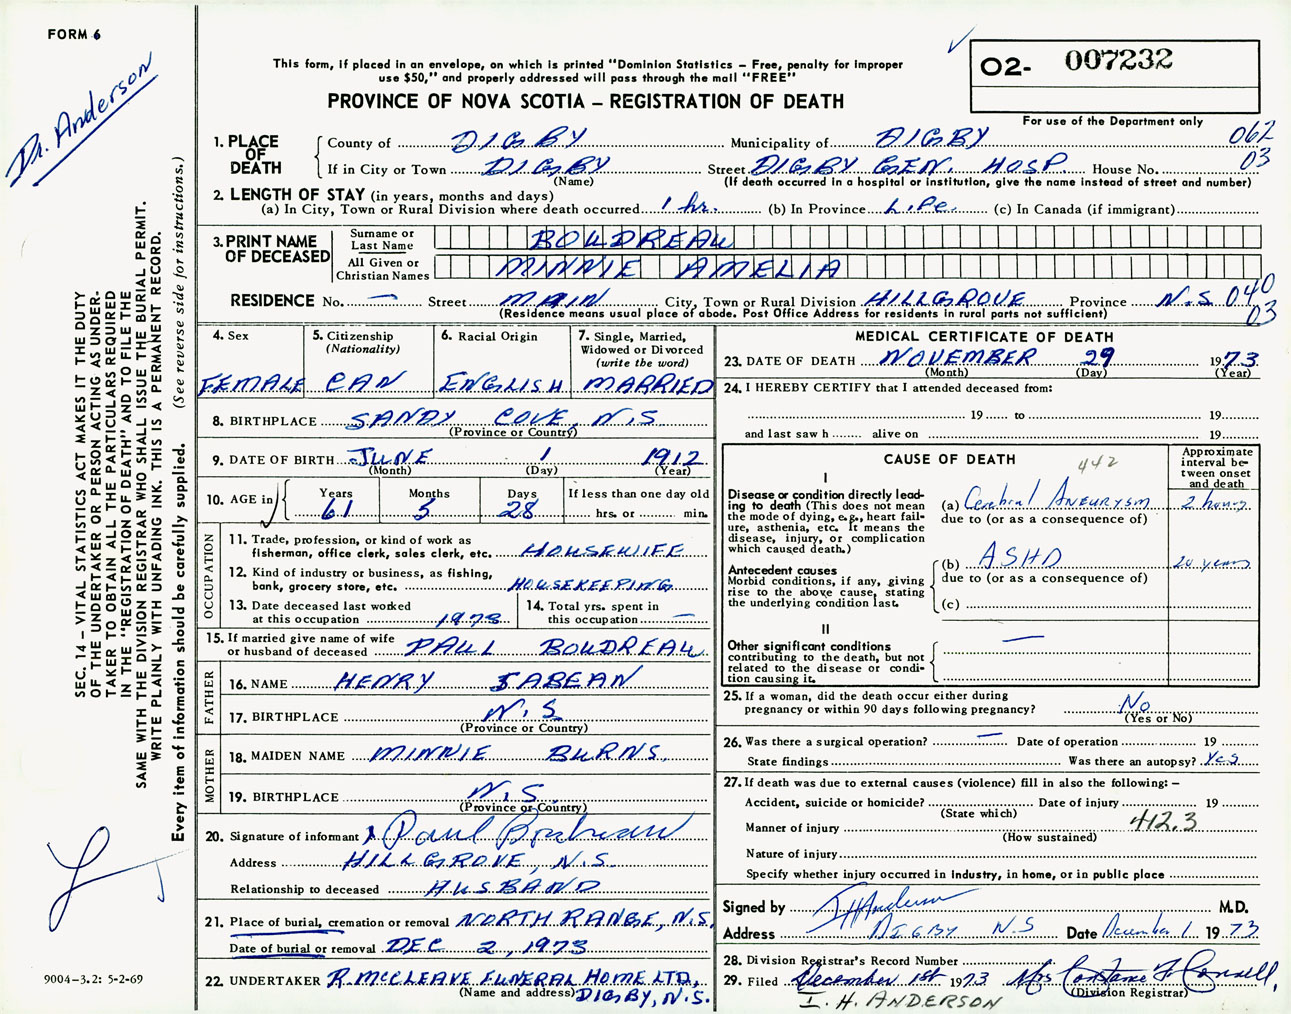 FORM 6
Dr. Anderson
SEC. 14 – VITAL STATISTICS ACT MAKES IT THE DUTY
OF THE UNDERTAKER OR PERSON ACTING AS UNDER-
TAKER TO OBTAIN ALL THE PARTICULARS REQUIRED
IN THE "REGISTRATION OF DEATH" AND TO FILE THE
SAME WITH THE DIVISION REGISTRAR WHO SHALL ISSUE THE BURIAL PERMIT.
WRITE PLAINLY WITH UNFADING INK. THIS IS A PERMANENT RECORD.
Every item of information should be carefully supplied. (See reverse side for instructions.)
9004-3.2: 5-2-69
This form, if placed in an envelope, on which is printed "Dominion Statistics – Free, penalty for improper
use $50," and properly addressed will pass through the mail "FREE"
PROVINCE OF NOVA SCOTIA – REGISTRATION OF DEATH
02- 007232
For use of the Department only
1. PLACE OF DEATH County of DIGBY Municipality of DIGBY 062
If in City or Town DIGBY Street DIGBY GEN. HOSP. House No. 03
(Name) (If death occurred in a hospital or institution, give the name instead of street and number)
2. LENGTH OF STAY (in years, months and days)
(a) In City, Town or Rural Division where death occurred 1 hr. (b) In Province Life (c) In Canada (if immigrant)
3. PRINT NAME OF DECEASED Surname or Last Name BOUDREAU
All Given or Christian Names MINNIE AMELIA
RESIDENCE No. — Street MAIN City, Town or Rural Division HILLGROVE Province N.S 040
(Residence means usual place of abode. Post Office Address for residents in rural parts not sufficient) 03
4. Sex FEMALE
5. Citizenship (Nationality) CAN
6. Racial Origin ENGLISH
7. Single, Married, Widowed or Divorced (write the word) MARRIED
8. BIRTHPLACE SANDY COVE, N.S
(Province or Country)
9. DATE OF BIRTH JUNE 1 1912
(Month) (Day) (Year)
10. AGE in Years 61 Months 5 Days 28 If less than one day old hrs. or min.
OCCUPATION
11. Trade, profession, or kind of work as
fisherman, office clerk, sales clerk, etc. HOUSEWIFE
12. Kind of industry or business, as fishing,
bank, grocery store, etc. HOUSEKEEPING
13. Date deceased last worked
at this occupation 1973
14. Total yrs. spent in
this occupation —
15. If married give name of wife
or husband of deceased PAUL BOUDREAU
FATHER
16. NAME HENRY SABEAN
17. BIRTHPLACE N.S
(Province or Country)
MOTHER
18. MAIDEN NAME MINNIE BURNS
19. BIRTHPLACE N.S.
(Province or Country)
20. Signature of informant Paul
Address HILLGROVE, N.S
Relationship to deceased HUSBAND
21. Place of burial, cremation or removal NORTH RANGE, N.S.
Date of burial or removal DEC 2, 1973
22. UNDERTAKER R. McCLEAVE FUNERAL HOME LTD,
(Name and address) DIGBY, N.S.
MEDICAL CERTIFICATE OF DEATH
23. DATE OF DEATH NOVEMBER 29 1973
(Month) (Day) (Year)
24. I HEREBY CERTIFY that I attended deceased from:
19 to 19
and last saw h alive on 19
CAUSE OF DEATH 442
Approximate interval between onset and death
I
Disease or condition directly lead-
ing to death (This does not mean
the mode of dying, e.g., heart fail-
ure, asthenia, etc. It means the
disease, injury, or complication
which caused death.)
(a) Cerebral ANEURYSM 2 hours
due to (or as a consequence of)
Antecedent causes
Morbid conditions, if any, giving
rise to the above cause, stating
the underlying condition last.
(b) ASHD 20 years
due to (or as a consequence of)
(c)
II
Other significant conditions —
contributing to the death, but not
related to the disease or condi-
tion causing it.
25. If a woman, did the death occur either during
pregnancy or within 90 days following pregnancy? No
(Yes or No)
26. Was there a surgical operation? — Date of operation 19
State findings Was there an autopsy? Yes
27. If death was due to external causes (violence) fill in also the following: –
Accident, suicide or homicide? Date of injury 19
(State which)
Manner of injury 412.3
(How sustained)
Nature of injury
Specify whether injury occurred in industry, in home, or in public place
Signed by IHAnderson M.D.
Address DIGBY N.S Date December 1 1973
28. Division Registrar's Record Number
29. Filed December 1st 1973 Mrs Constance F.
(Division Registrar)
I. H. ANDERSON